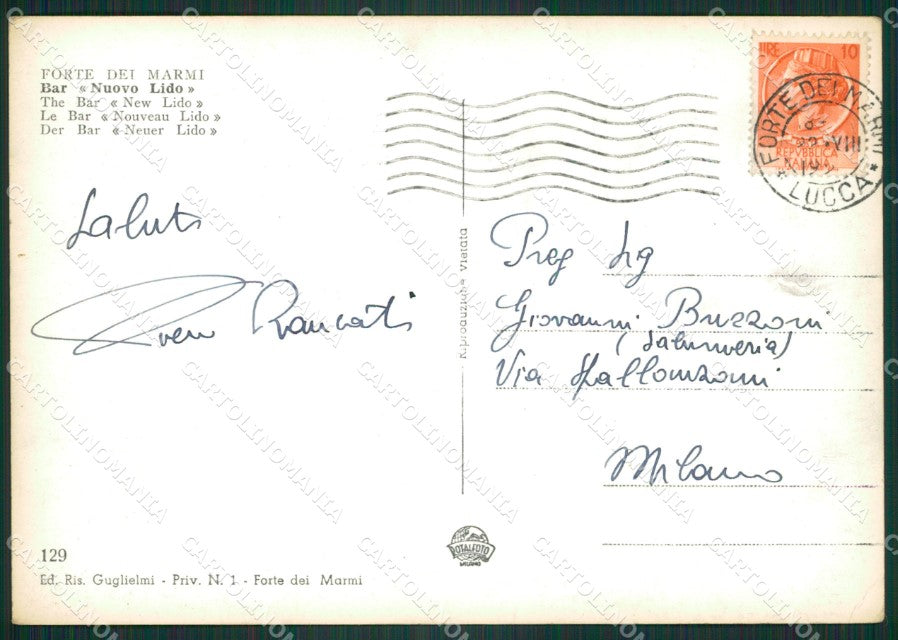 FORTE DEI MARMI
Bar «Nuovo Lido»
The Bar «New Lido»
Le Bar «Nouveau Lido»
Der Bar «Neuer Lido»
LIRE 10
REPVBBLICA
ITALIANA
FORTE DEI MARMI
VIII
LUCCA
Saluti
Roncati
Riproduzione Vietata
Preg Sig
Giovanni Buzzoni
(Salumeria)
Via
Milano
129
Ed. Ris. Guglielmi - Priv. N. 1 - Forte dei Marmi
ROTALFOTO
MILANO
CARTOLINOMANIA